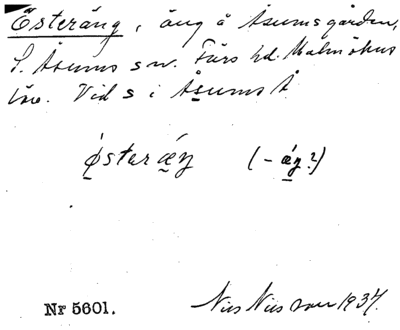 Österäng, äng å Åsumsgården,
S. Åsums sn. Färs hd. Malmöhus
län. Vid s i Åsums Å
ǿsteræŋ (-ǽŋ?)
Nr 5601.
Nils Nilsson 1937.